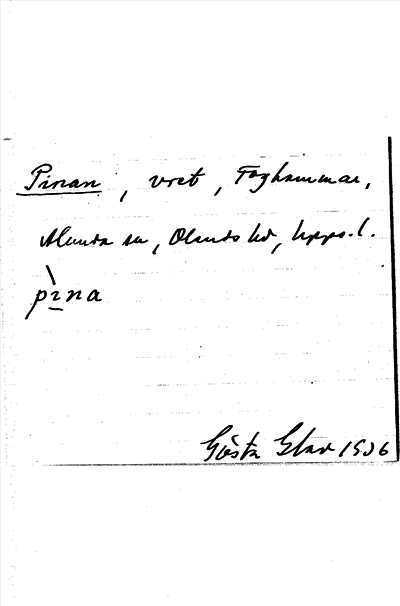 Pinan, vret, Foghammar,
Alunda sn, Olands hd, Upps. l.
pìna
Gösta Glav 1936